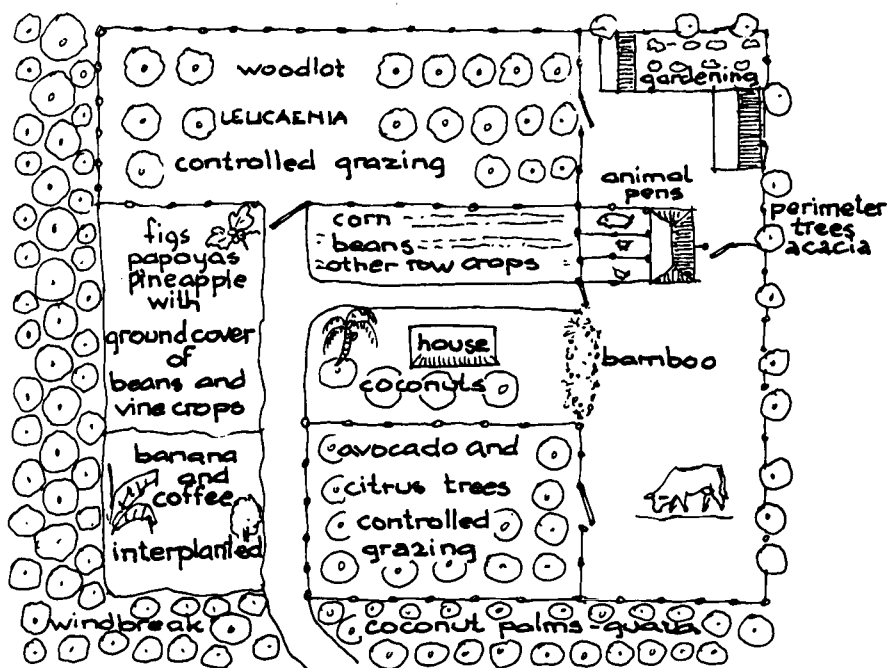 woodlot
LEUCAENIA
controlled grazing
gardening
animal
pens
perimeter
trees
acacia
corn
beans
other row crops
figs
papayas
pineapple
with
ground cover
of
beans and
vine crops
house
coconuts
bamboo
banana
and
coffee
interplanted
avocado and
citrus trees
controlled
grazing
windbreak
coconut palms - guava